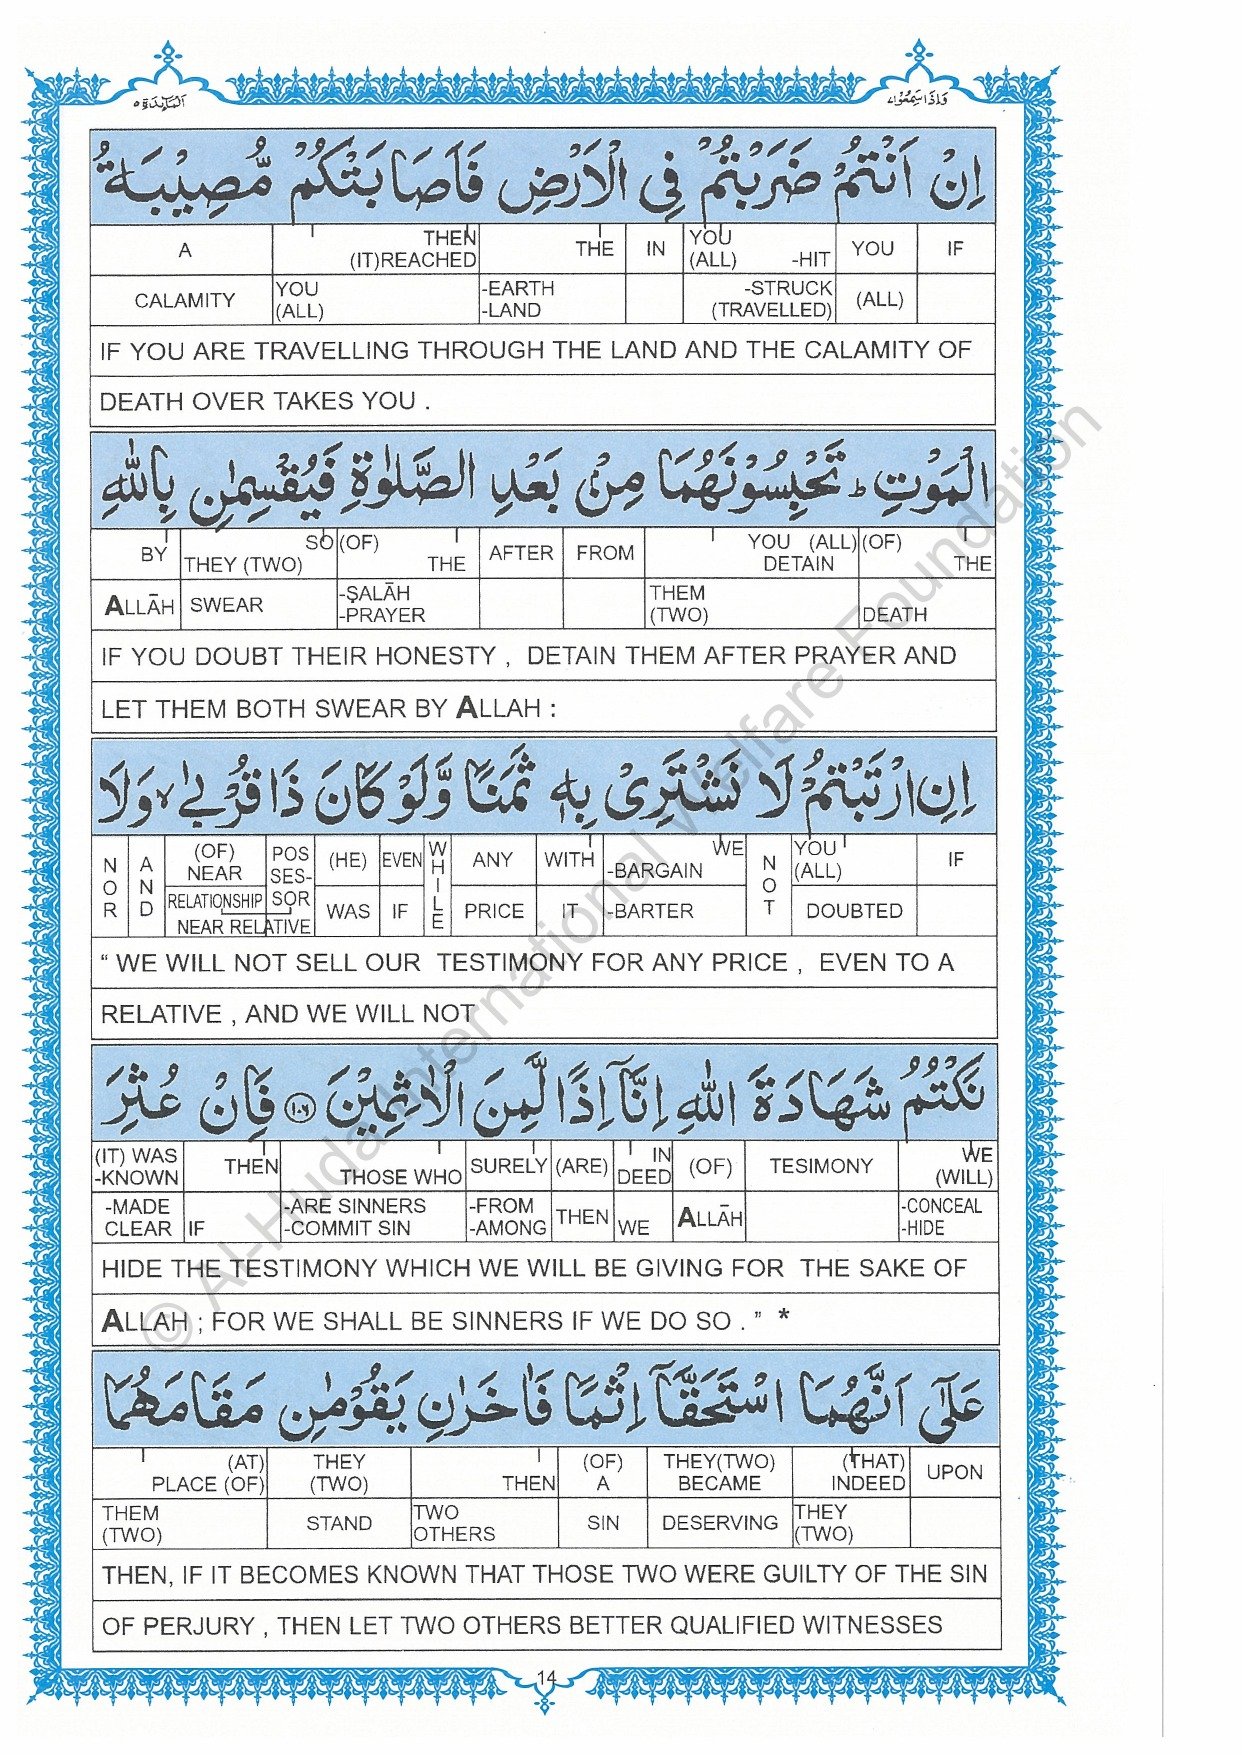 اَلْمَآئِدَة ٥
وَاِذَاسَمِعُوْا ٧
اِنْ اَنْتُمْ ضَرَبْتُمْ فِي الْاَرْضِ فَاَصَابَتْكُمْ مُّصِيْبَةُ
A THEN (IT)REACHED THE IN YOU (ALL) -HIT YOU IF
CALAMITY YOU (ALL) -EARTH -LAND -STRUCK (TRAVELLED) (ALL)
IF YOU ARE TRAVELLING THROUGH THE LAND AND THE CALAMITY OF
DEATH OVER TAKES YOU .
الْمَوْتِ ؕ تَحْبِسُوْنَهُمَا مِنْۢ بَعْدِ الصَّلٰوةِ فَيُقْسِمٰنِ بِاللّٰهِ
BY SO THEY (TWO) (OF) THE AFTER FROM YOU (ALL) DETAIN (OF) THE
ALLĀH SWEAR -ṢALĀH -PRAYER THEM (TWO) DEATH
IF YOU DOUBT THEIR HONESTY , DETAIN THEM AFTER PRAYER AND
LET THEM BOTH SWEAR BY ALLAH :
اِنِ ارْتَبْتُمْ لَا نَشْتَرِىْ بِهٖ ثَمَنًا وَّلَوْ كَانَ ذَا قُرْبٰى ۙ وَلَا
NOR AND (OF) NEAR POSSES-SOR (HE) EVEN WHILE ANY WITH WE -BARGAIN NOT YOU (ALL) IF
RELATIONSHIP WAS IF PRICE IT -BARTER DOUBTED
NEAR RELATIVE
“ WE WILL NOT SELL OUR TESTIMONY FOR ANY PRICE , EVEN TO A
RELATIVE , AND WE WILL NOT
نَكْتُمُ شَهَادَةَ اللّٰهِ اِنَّاۤ اِذًا لَّمِنَ الْاٰثِمِيْنَ ١٠٦ فَاِنْ عُثِرَ
(IT) WAS -KNOWN THEN THOSE WHO SURELY (ARE) INDEED (OF) TESIMONY WE (WILL)
-MADE CLEAR IF -ARE SINNERS -COMMIT SIN -FROM -AMONG THEN WE ALLĀH -CONCEAL -HIDE
HIDE THE TESTIMONY WHICH WE WILL BE GIVING FOR THE SAKE OF
ALLAH ; FOR WE SHALL BE SINNERS IF WE DO SO . ” *
عَلٰٓى اَنَّهُمَا اسْتَحَقَّاۤ اِثْمًا فَاٰخَرٰنِ يَقُوْمٰنِ مَقَامَهُمَا
(AT) PLACE (OF) THEY (TWO) THEN (OF) A THEY(TWO) BECAME (THAT) INDEED UPON
THEM (TWO) STAND TWO OTHERS SIN DESERVING THEY (TWO)
THEN, IF IT BECOMES KNOWN THAT THOSE TWO WERE GUILTY OF THE SIN
OF PERJURY , THEN LET TWO OTHERS BETTER QUALIFIED WITNESSES
14
© Al-Huda International Welfare Foundation